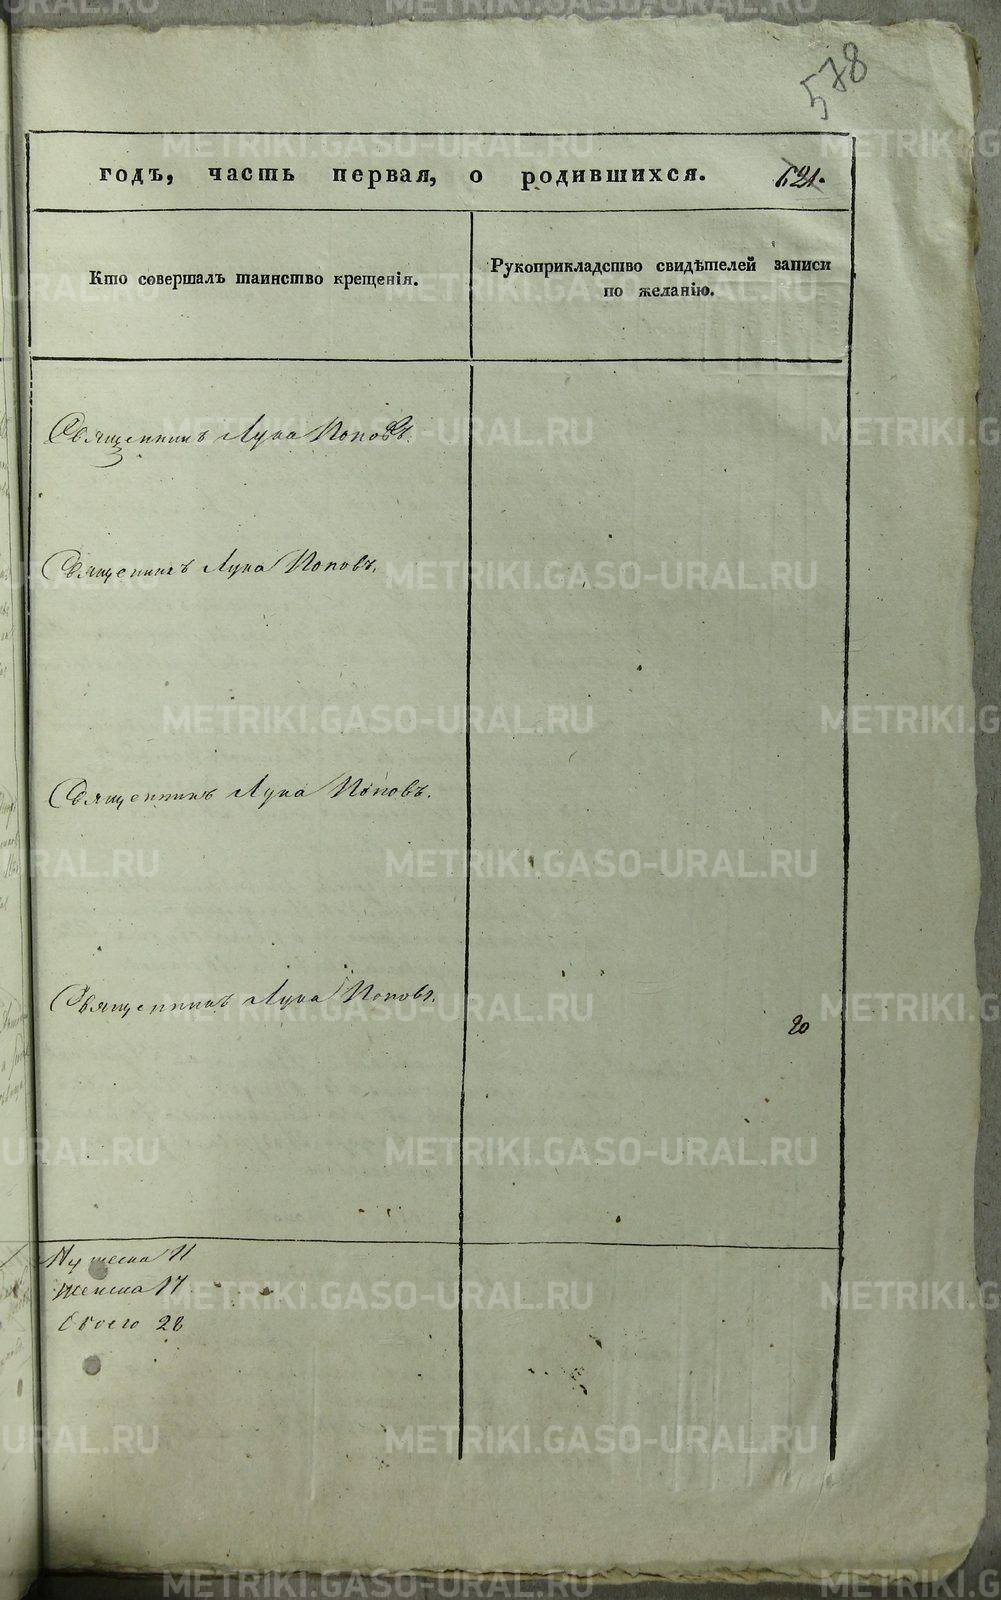 578
годъ, часть первая, о родившихся. 621.
Кто совершалъ таинство крещенія.
Рукоприкладство свидѣтелей записи
по желанію.
Священникъ Лука Поповъ.
Священникъ Лука Поповъ.
Священникъ Лука Поповъ.
Священникъ Лука Поповъ.
20
Мужеска 11
Женска 17
Обоего 28
METRIKI.GASO-URAL.RU